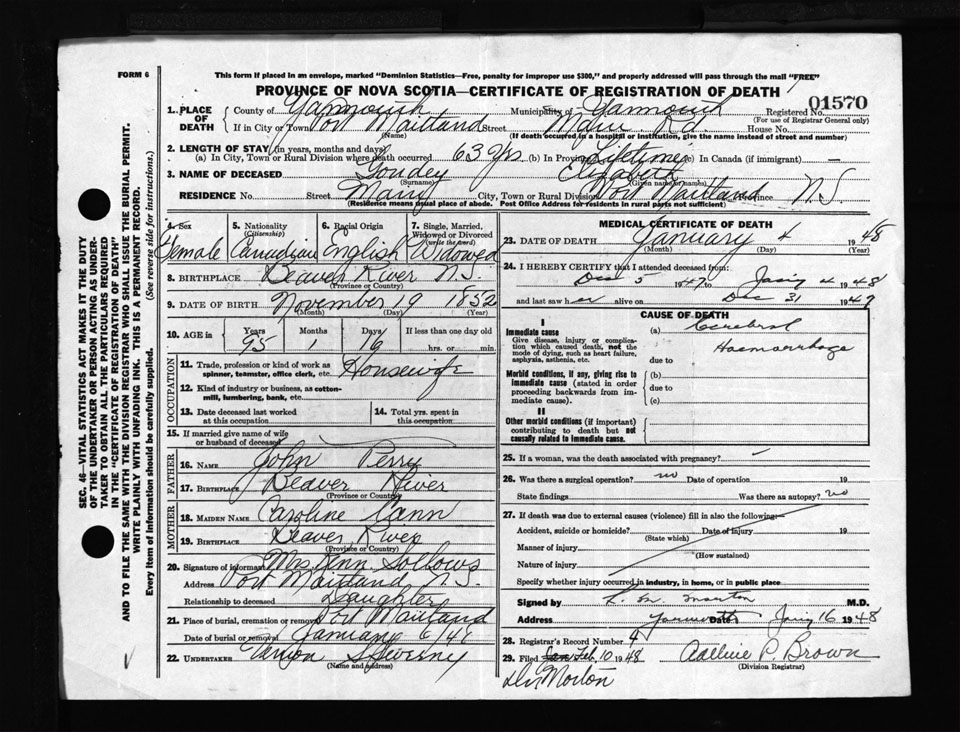 FORM 6
This form if placed in an envelope, marked "Dominion Statistics—Free, penalty for improper use $300," and properly addressed will pass through the mail "FREE"
PROVINCE OF NOVA SCOTIA—CERTIFICATE OF REGISTRATION OF DEATH
1. PLACE OF DEATH County of Yarmouth Municipality of Yarmouth Registered No. 01570
(For use of Registrar General only)
If in City or Town Port Maitland Street Main Rd. House No.
(Name) (If death occurred in a hospital or institution, give the name instead of street and number)
2. LENGTH OF STAY (in years, months and days)
(a) In City, Town or Rural Division where death occurred 63 yrs (b) In Province Lifetime (c) In Canada (if immigrant) —
3. NAME OF DECEASED Goudey Elizabeth
(Surname) (Given name or names)
RESIDENCE No. Street Main City, Town or Rural Division Port Maitland Province N.S.
(Residence means usual place of abode. Post Office Address for residents in rural parts not sufficient)
4. Sex 5. Nationality (Citizenship) 6. Racial Origin 7. Single, Married, Widowed or Divorced (write the word)
Female Canadian English Widowed
8. BIRTHPLACE Beaver River N.S.
(Province or Country)
9. DATE OF BIRTH November 19 1852
(Month) (Day) (Year)
10. AGE in Years Months Days If less than one day old
95 1 16 hrs. or min.
OCCUPATION
11. Trade, profession or kind of work as spinner, teamster, office clerk, etc. Housewife
12. Kind of industry or business, as cotton-mill, lumbering, bank, etc.
13. Date deceased last worked at this occupation
14. Total yrs. spent in this occupation
15. If married give name of wife or husband of deceased
FATHER
16. NAME John Perry
17. BIRTHPLACE Beaver River
(Province or Country)
MOTHER
18. MAIDEN NAME Caroline Cann
19. BIRTHPLACE Beaver River
(Province or Country)
20. Signature of informant Mrs. Ann Sollows
Address Port Maitland N.S.
Relationship to deceased Daughter
21. Place of burial, cremation or removal Port Maitland
Date of burial or removal January 6/48
22. UNDERTAKER Vernon Sweeny
(Name and address)
MEDICAL CERTIFICATE OF DEATH
23. DATE OF DEATH January 4 1948
(Month) (Day) (Year)
24. I HEREBY CERTIFY that I attended deceased from:
Dec 5 1947 to Jany 4 1948
and last saw her alive on Dec 31 1947
CAUSE OF DEATH
I
Immediate cause (a) Cerebral
Give disease, injury or complication which caused death, not the mode of dying, such as heart failure, asphyxia, asthenia, etc. Haemorrhage
due to
Morbid conditions, if any, giving rise to immediate cause (stated in order proceeding backwards from immediate cause).
(b)
due to
(c)
II
Other morbid conditions (if important) contributing to death but not causally related to immediate cause.
25. If a woman, was the death associated with pregnancy? —
26. Was there a surgical operation? no Date of operation 19
State findings Was there an autopsy? no
27. If death was due to external causes (violence) fill in also the following:—
Accident, suicide or homicide? Date of injury 19
(State which)
Manner of injury
(How sustained)
Nature of injury
Specify whether injury occurred in industry, in home, or in public place
Signed by L. M. Morton M.D.
Address Yarmouth Date Jany 16 1948
28. Registrar's Record Number 4
29. Filed Jan Feb. 10 1948 P. Brown
(Division Registrar)
Dr. Morton
SEC. 46—VITAL STATISTICS ACT MAKES IT THE DUTY
OF THE UNDERTAKER OR PERSON ACTING AS UNDERTAKER TO OBTAIN ALL THE PARTICULARS REQUIRED
IN THE "CERTIFICATE OF REGISTRATION OF DEATH"
AND TO FILE THE SAME WITH THE DIVISION REGISTRAR WHO SHALL ISSUE THE BURIAL PERMIT.
WRITE PLAINLY WITH UNFADING INK. THIS IS A PERMANENT RECORD.
Every item of information should be carefully supplied. (See reverse side for instructions.)